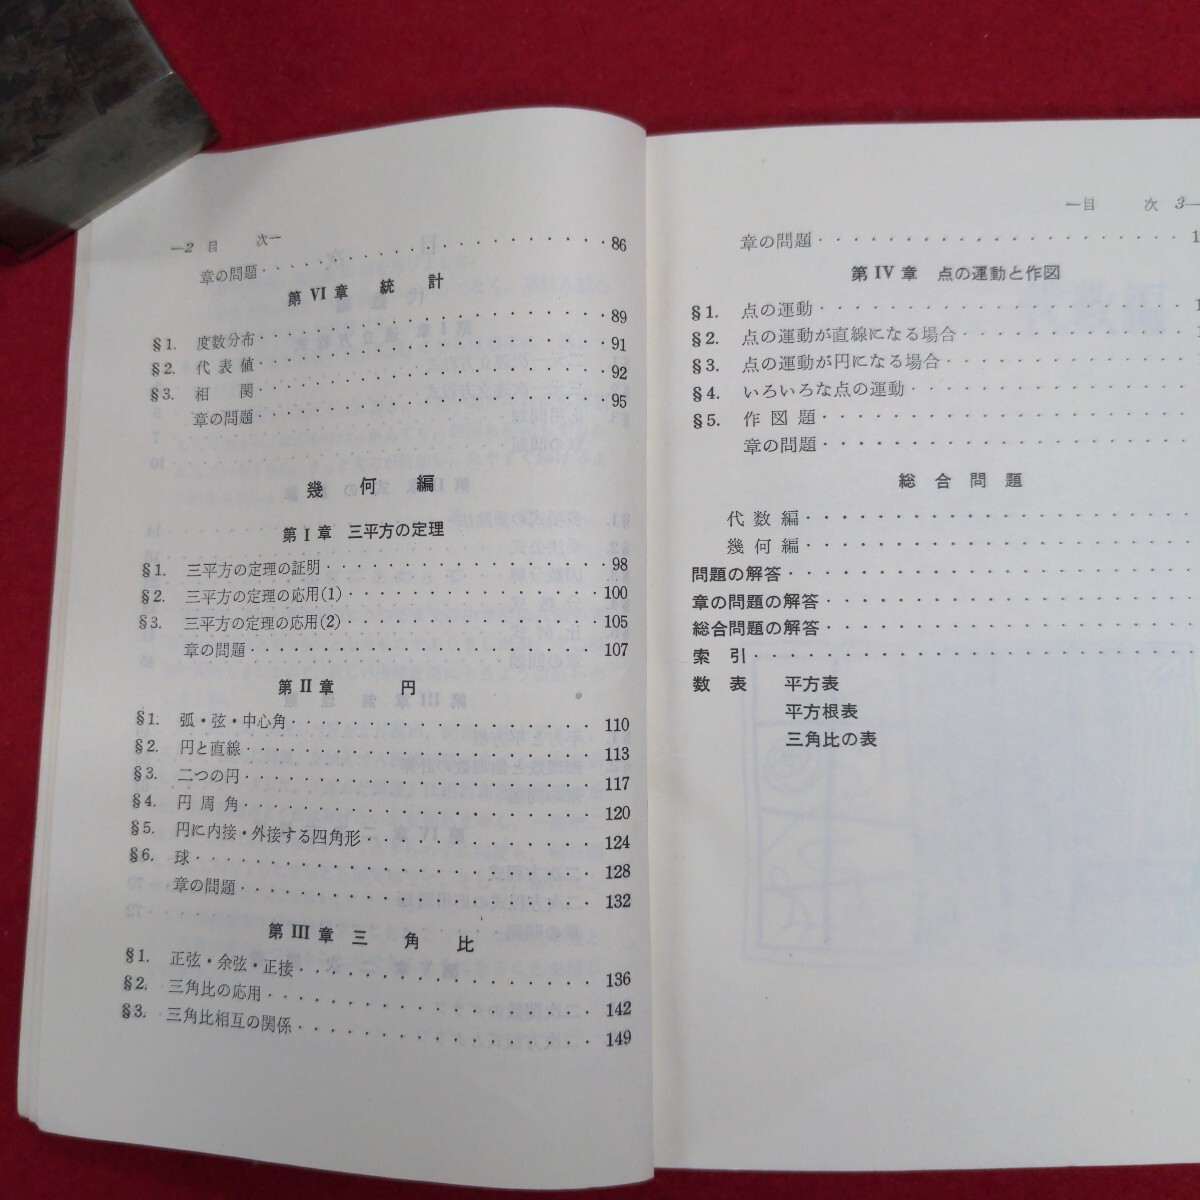 —2 目 次—
章の問題 86
第 VI 章 統 計
§1. 度数分布 89
§2. 代表値 91
§3. 相 関 92
章の問題 95
幾 何 編
第 I 章 三平方の定理
§1. 三平方の定理の証明 98
§2. 三平方の定理の応用(1) 100
§3. 三平方の定理の応用(2) 105
章の問題 107
第 II 章 円
§1. 弧・弦・中心角 110
§2. 円と直線 113
§3. 二つの円 117
§4. 円周角 120
§5. 円に内接・外接する四角形 124
§6. 球 128
章の問題 132
第 III 章 三 角 比
§1. 正弦・余弦・正接 136
§2. 三角比の応用 142
§3. 三角比相互の関係 149
—目 次 3—
章の問題 1
第 IV 章 点の運動と作図
§1. 点の運動 1
§2. 点の運動が直線になる場合
§3. 点の運動が円になる場合
§4. いろいろな点の運動
§5. 作図題
章の問題
総 合 問 題
代数編
幾何編
問題の解答
章の問題の解答
総合問題の解答
索 引
数 表 平方表
平方根表
三角比の表